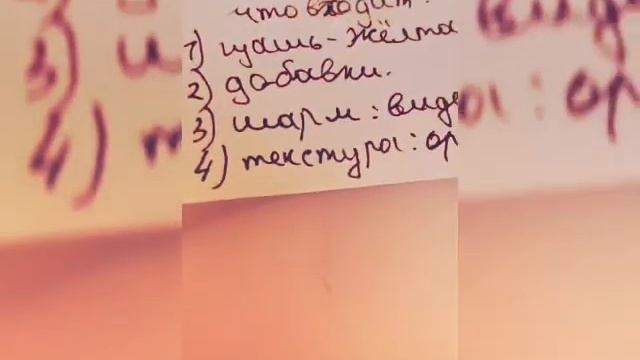 что входит:
1) гуашь-жёлта
2) добавки.
3) шарм: виде
4) текстуры: ор